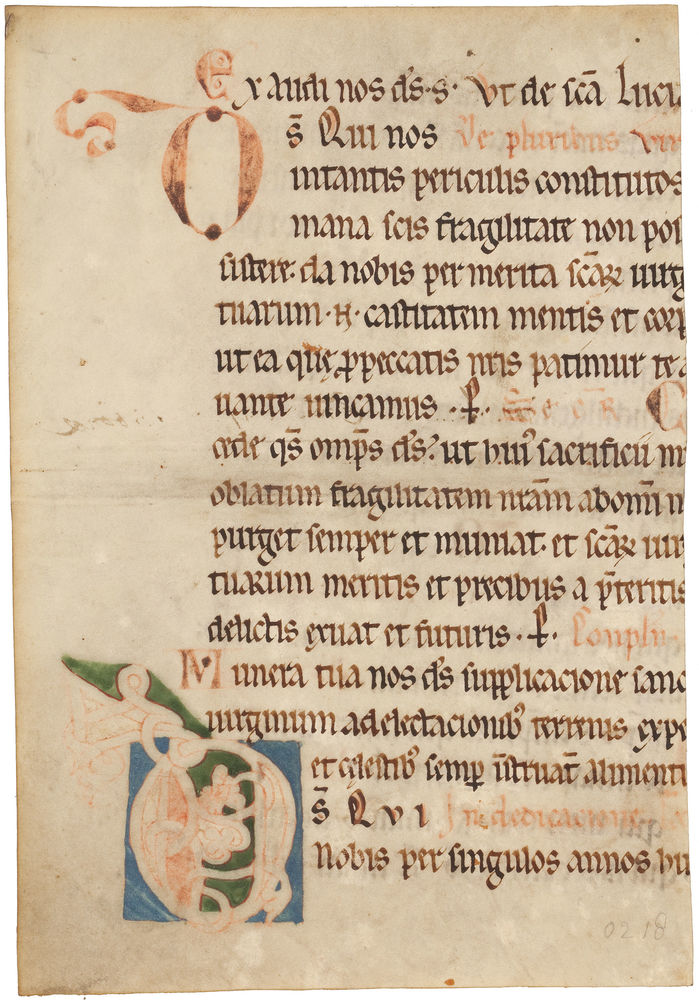 Exaudi nos ds̄·s· Vt de scā Luci
D s̄ Qui nos De pluribus vir
intantis periculis constitutos
mana scis fragilitate non pos
sistere· da nobis per merita scāꝝ uirg
tuarum ·N· castitatem mentis et corp
ut ea quę ꝓ peccatis nr̄is patimur te a
uante uincamus ·P· C
cede qs̄ omp̄s ds̄? ut huiꝰ sacrificii m
oblatum fragilitatem nr̄am ab om̄i m
purget semper et muniat· et scāꝝ uir
tuarum meritis et precibus a p̄teritis
delictis exuat et futuris ·P· Conplu
Munera tua nos ds̄ supplicacione sanc
uirginum a delectacionibꝰ terrenis expe
et cęlestibꝰ semꝑ īstruat̄ alimenti
D s̄ Qvi In dedicacione
Nobis per singulos annos hu
0218